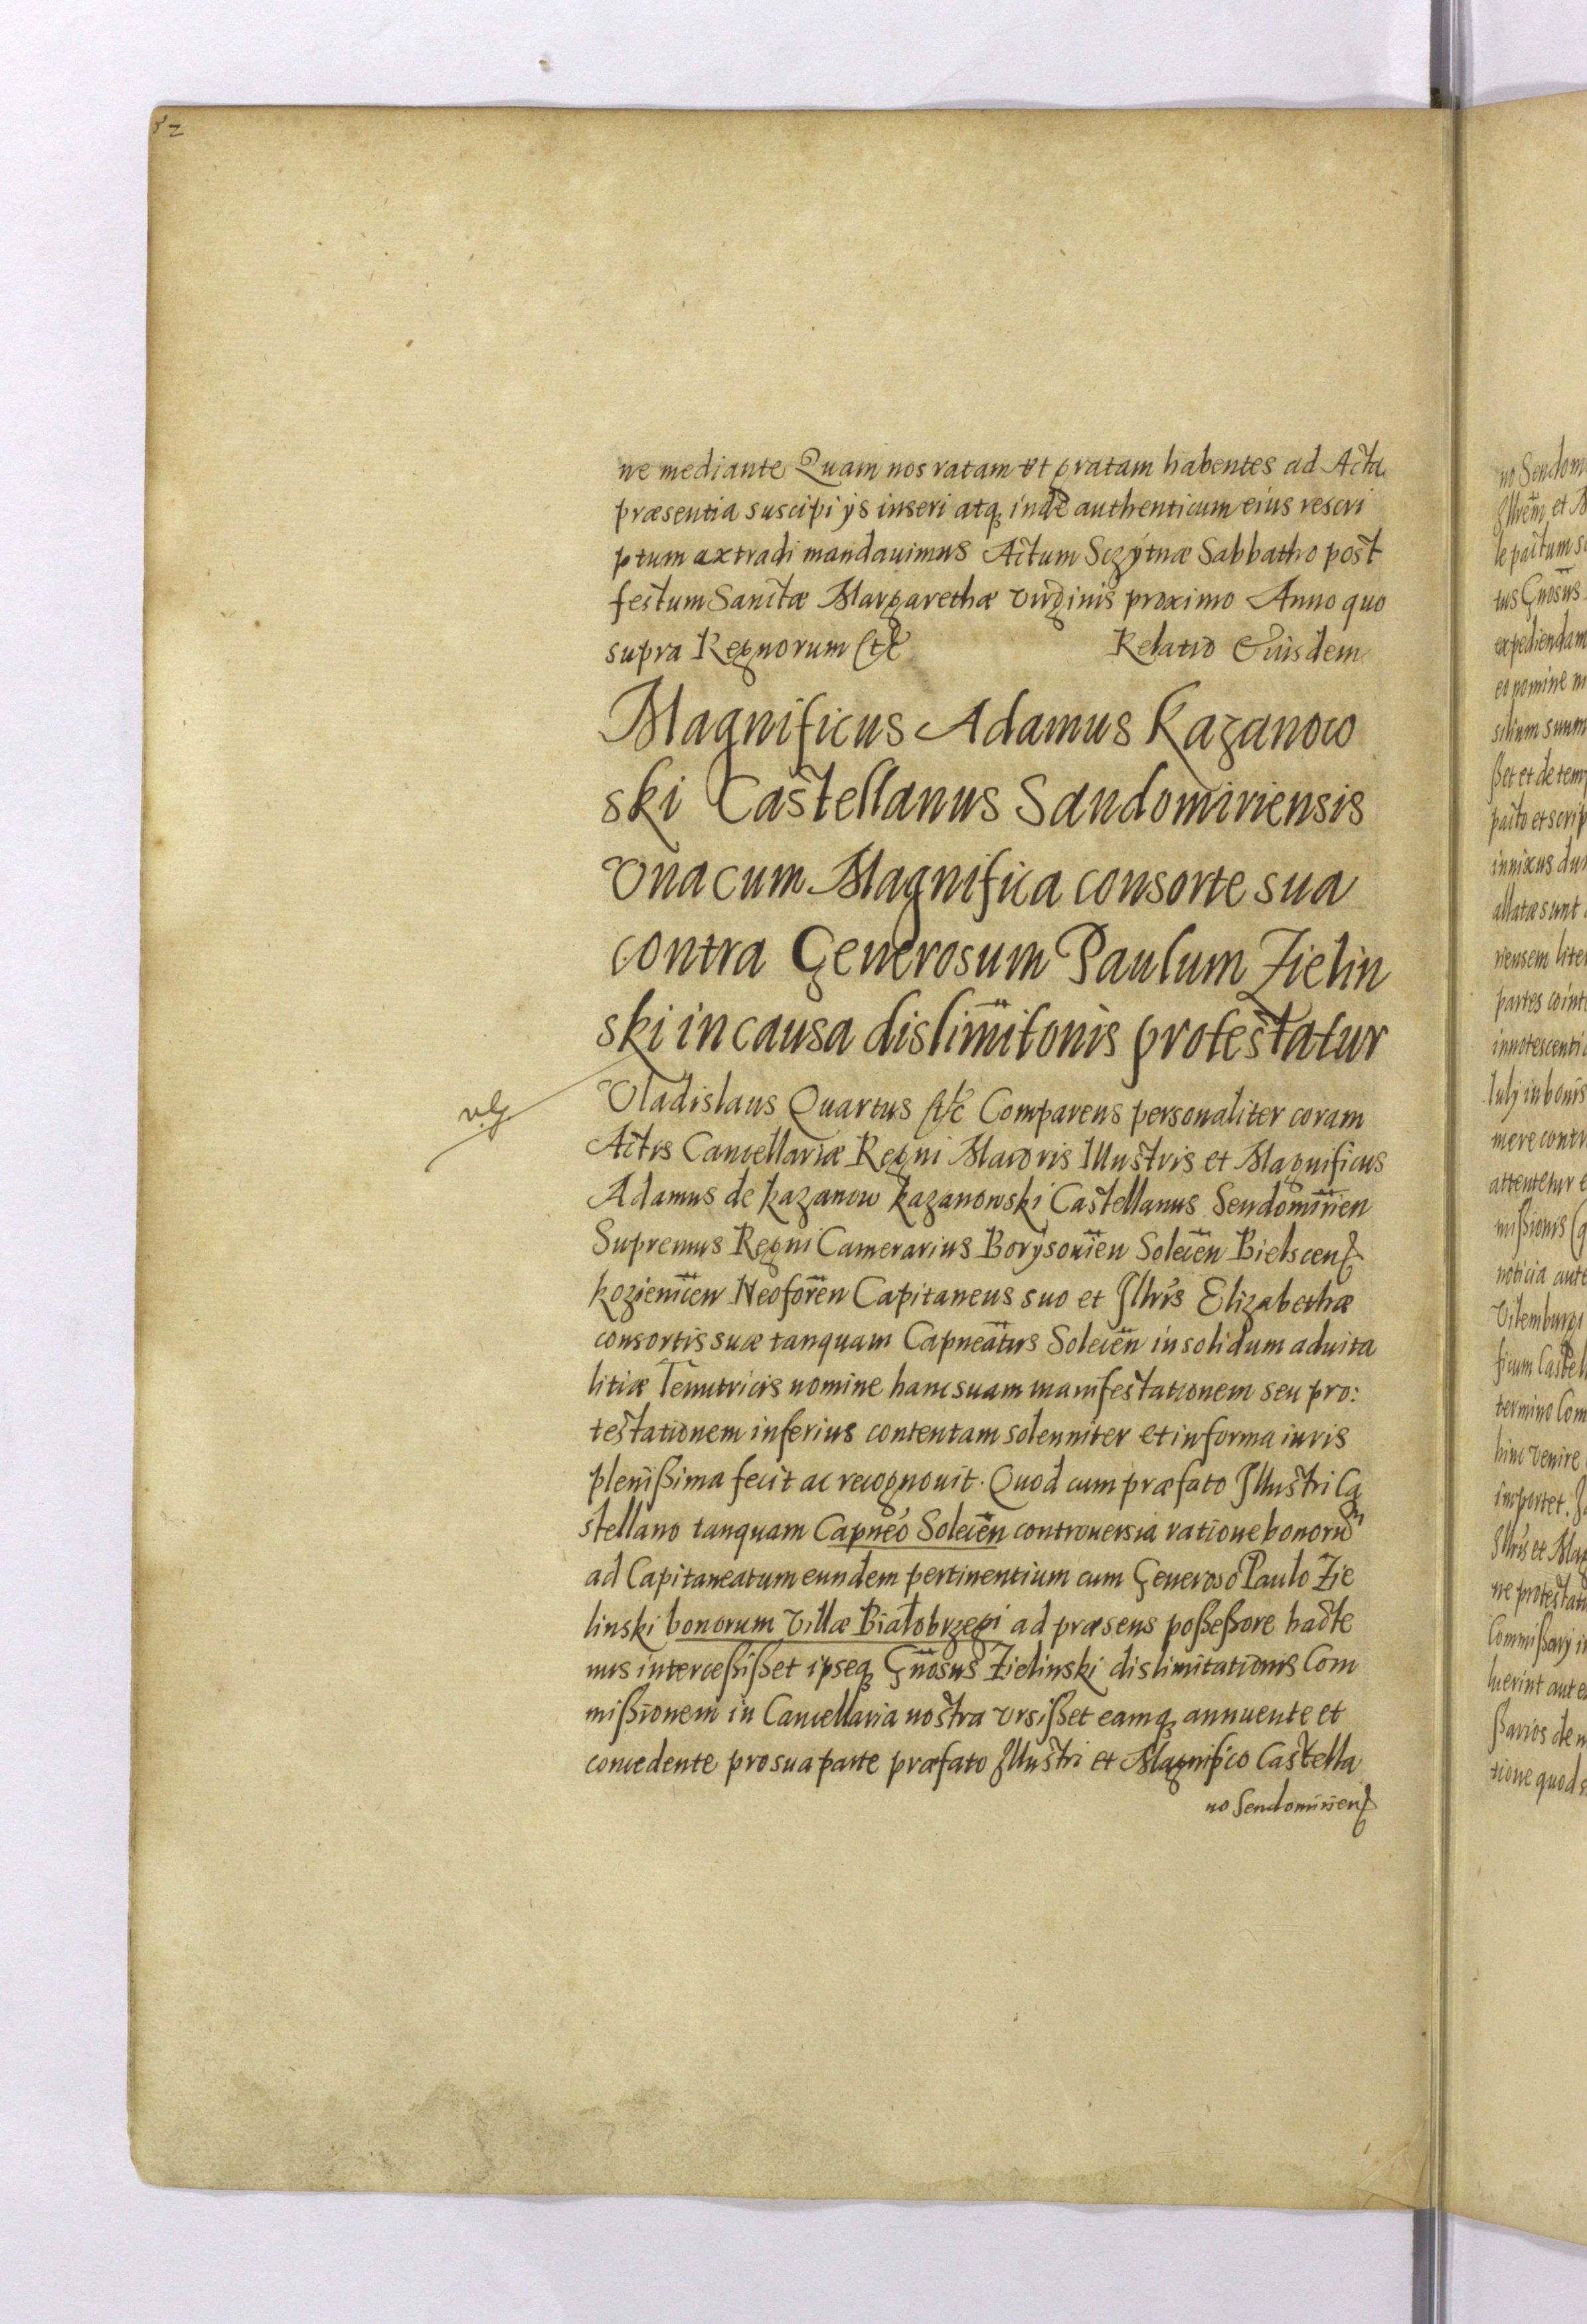 82
ne mediante Quam nos ratam et gratam habentes ad Acta
præsentia suscipi ÿs inseri atq3 inde authenticum eius rescri
ptum extradi mandauimus Actum Sczÿtnæ Sabbatho post
festum Sanctæ Margarethæ virginis proximo Anno quo
supra Regnorum etc Relatio Eiusdem
Magnificus Adamus Kazanow
ski Castellanus Sandomiriensis
Vna cum Magnifica consorte sua
contra Generosum Paulum Zielin
ski in causa dislimitonis protestatur
Vladislaus Quartus etc Comparens personaliter coram
Actis Cancellariæ Regni Maioris Illustris et Magnificus
Adamus de Kazanow Kazanowski Castellanus Sendomirien
Supremus Regni Camerarius Borÿsouien Solecen Bielscens
Kozienicen Neoforen Capitaneus suo et Illris Elizabethæ
consortis suæ tanquam Capneatus Solecen in solidum aduita
litiæ Tenutricis nomine hanc suam manifestationem seu pro:
testationem inferius contentam solenniter et in forma iuris
plenißima fecit ac recognouit. Quod cum præfato Illustri Ca
stellano tanquam Capneo Solecen controuersia ratione bonorum
ad Capitaneatum eundem pertinentium cum Generoso Paulo Zie
linski bonorum villæ Białobrzegi ad præsens poßeßore hacte
nus interceßißet ipseq3 Gnosus Zielinski dislimitationis Com
mißionem in Cancellaria nostra vrsißet eamq3 annuente et
concedente pro sua parte præfato Illustri et Magnifico Castella
no Sendomiriens
no Sendom
Illrem et M
tus Gnosus
expediendam
eo nomine
innixus
allatæ sunt
riensem
partes
innotescenti
Julÿ in bonis
mere contr
attentetur
mißionis
noticia
Vilemburgi
ficum Castell
termino Com
hinc venire
importet.
Illris et Mag
ne protestat
Commißarÿ
luerint aut
ßarios de
tione quod